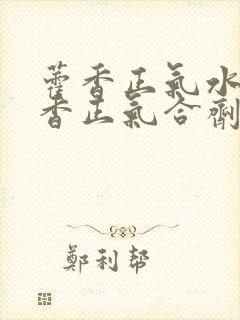 藿香正氣水
香正氣合劑
鄭利幫